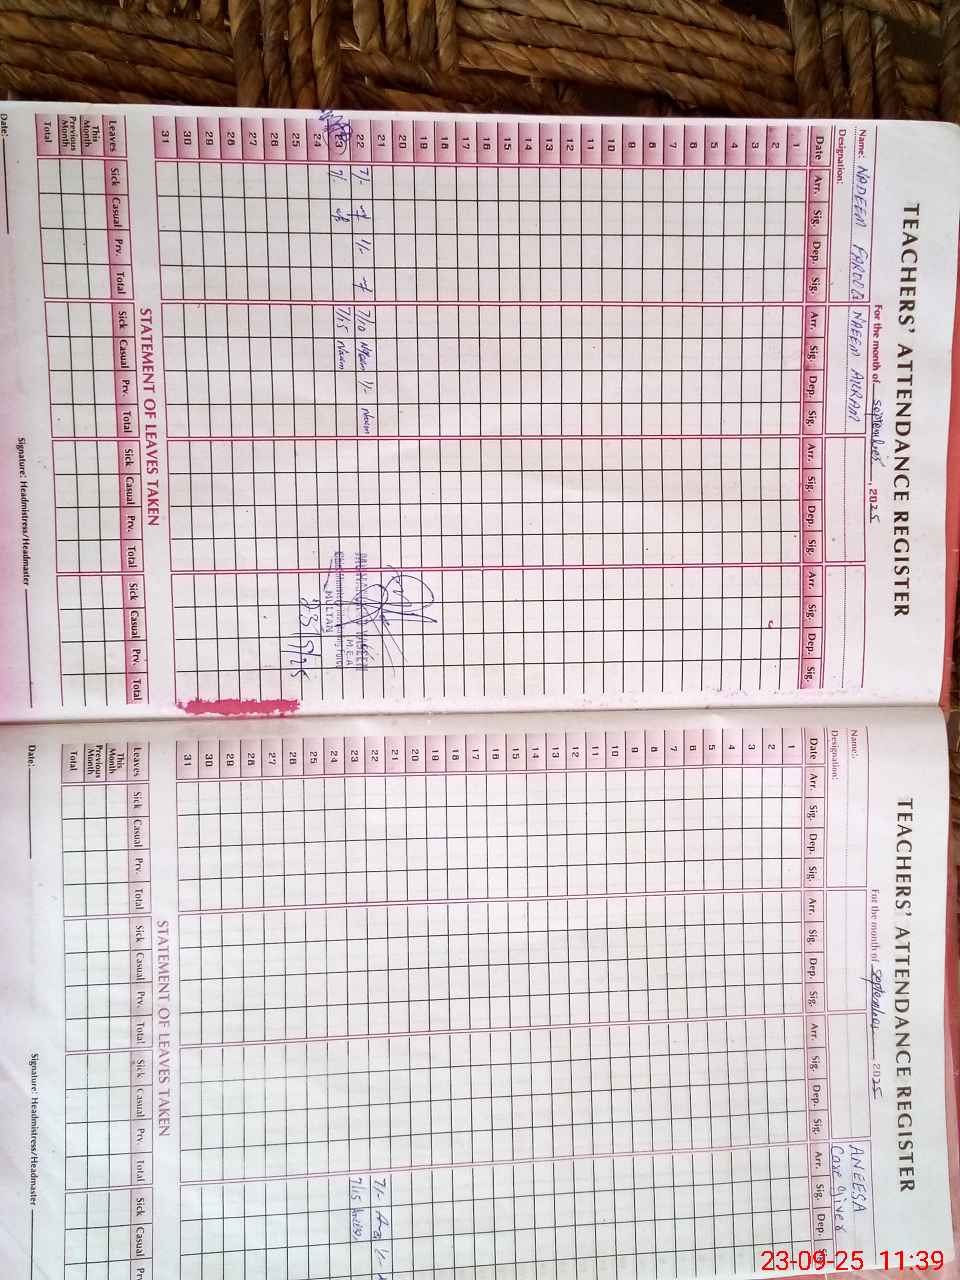 TEACHERS' ATTENDANCE REGISTER
For the month of September, 2025
Name: NADEEM FAROOQ NAEEM AKRAM
Designation:
Date Arr. Sig. Dep. Sig. Arr. Sig. Dep. Sig. Arr. Sig. Dep. Sig. Arr. Sig. Dep. Sig.
1
2
3
4
5
6
7
8
9
10
11
12
13
14
15
16
17
18
19
20
21
22 7/- 1/- 7/10 Naeem 1/- Naeem
23 7/- 7/15 Naeem
24
25
26
27
28
29
30
31
MUHAMMAD WASEEM
M.E.A
MULTAN
23/9/25
STATEMENT OF LEAVES TAKEN
Leaves Sick Casual Prv. Total Sick Casual Prv. Total Sick Casual Prv. Total Sick Casual Prv. Total
This Month
Previous Month
Total
Date: Signature: Headmistress/Headmaster
TEACHERS' ATTENDANCE REGISTER
For the month of September, 2025
Name: ANEESA
Designation: Care giver
Date Arr. Sig. Dep. Sig. Arr. Sig. Dep. Sig. Arr. Sig. Dep. Sig. Arr. Sig. Dep.
1
2
3
4
5
6
7
8
9
10
11
12
13
14
15
16
17
18
19
20
21
22 7/- 1/-
23 7/15
24
25
26
27
28
29
30
31
STATEMENT OF LEAVES TAKEN
Leaves Sick Casual Prv. Total Sick Casual Prv. Total Sick Casual Prv. Total Sick Casual Prv.
This Month
Previous Month
Total
Date: Signature: Headmistress/Headmaster
23-09-25 11:39